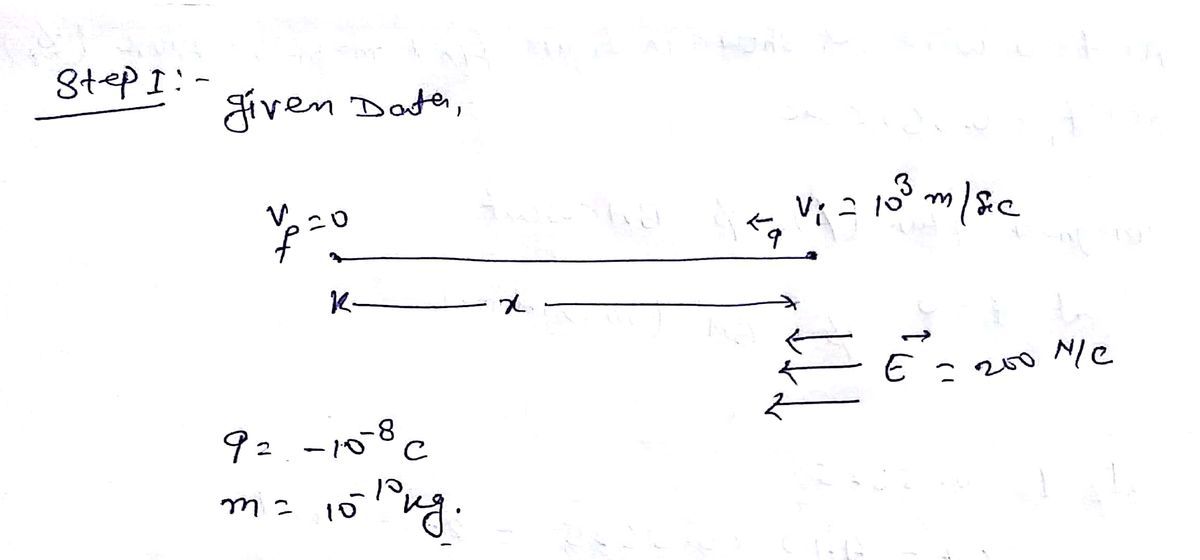 Step I :-
given Data,
V_f = 0
← q V_i = 10³ m/sec
x
E⃗ = 200 N/C
q = -10⁻⁸ C
m = 10⁻¹⁰ kg.